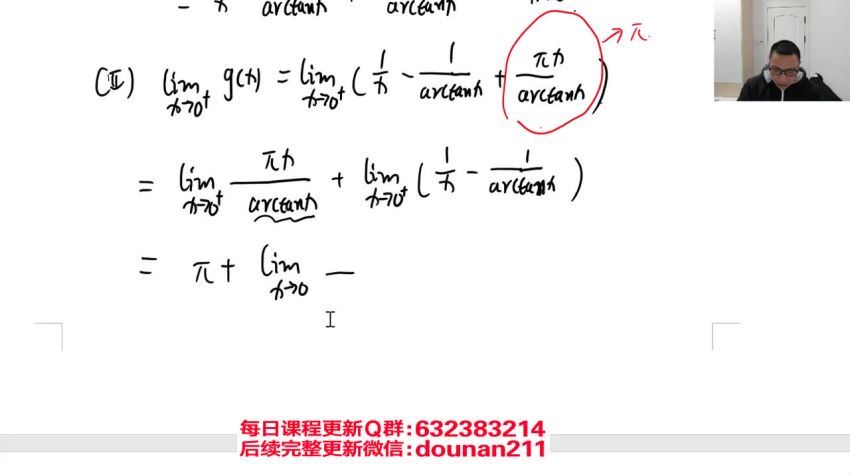 = 1/x arctanx arctanx
(Ⅱ) lim x→0⁺ g(x) = lim x→0⁺ ( 1/x - 1/arctanx + πx/arctanx ) → π
= lim x→0⁺ πx/arctanx + lim x→0⁺ ( 1/x - 1/arctanx )
= π + lim x→0 —
每日课程更新Q群:632383214
后续完整更新微信:dounan211